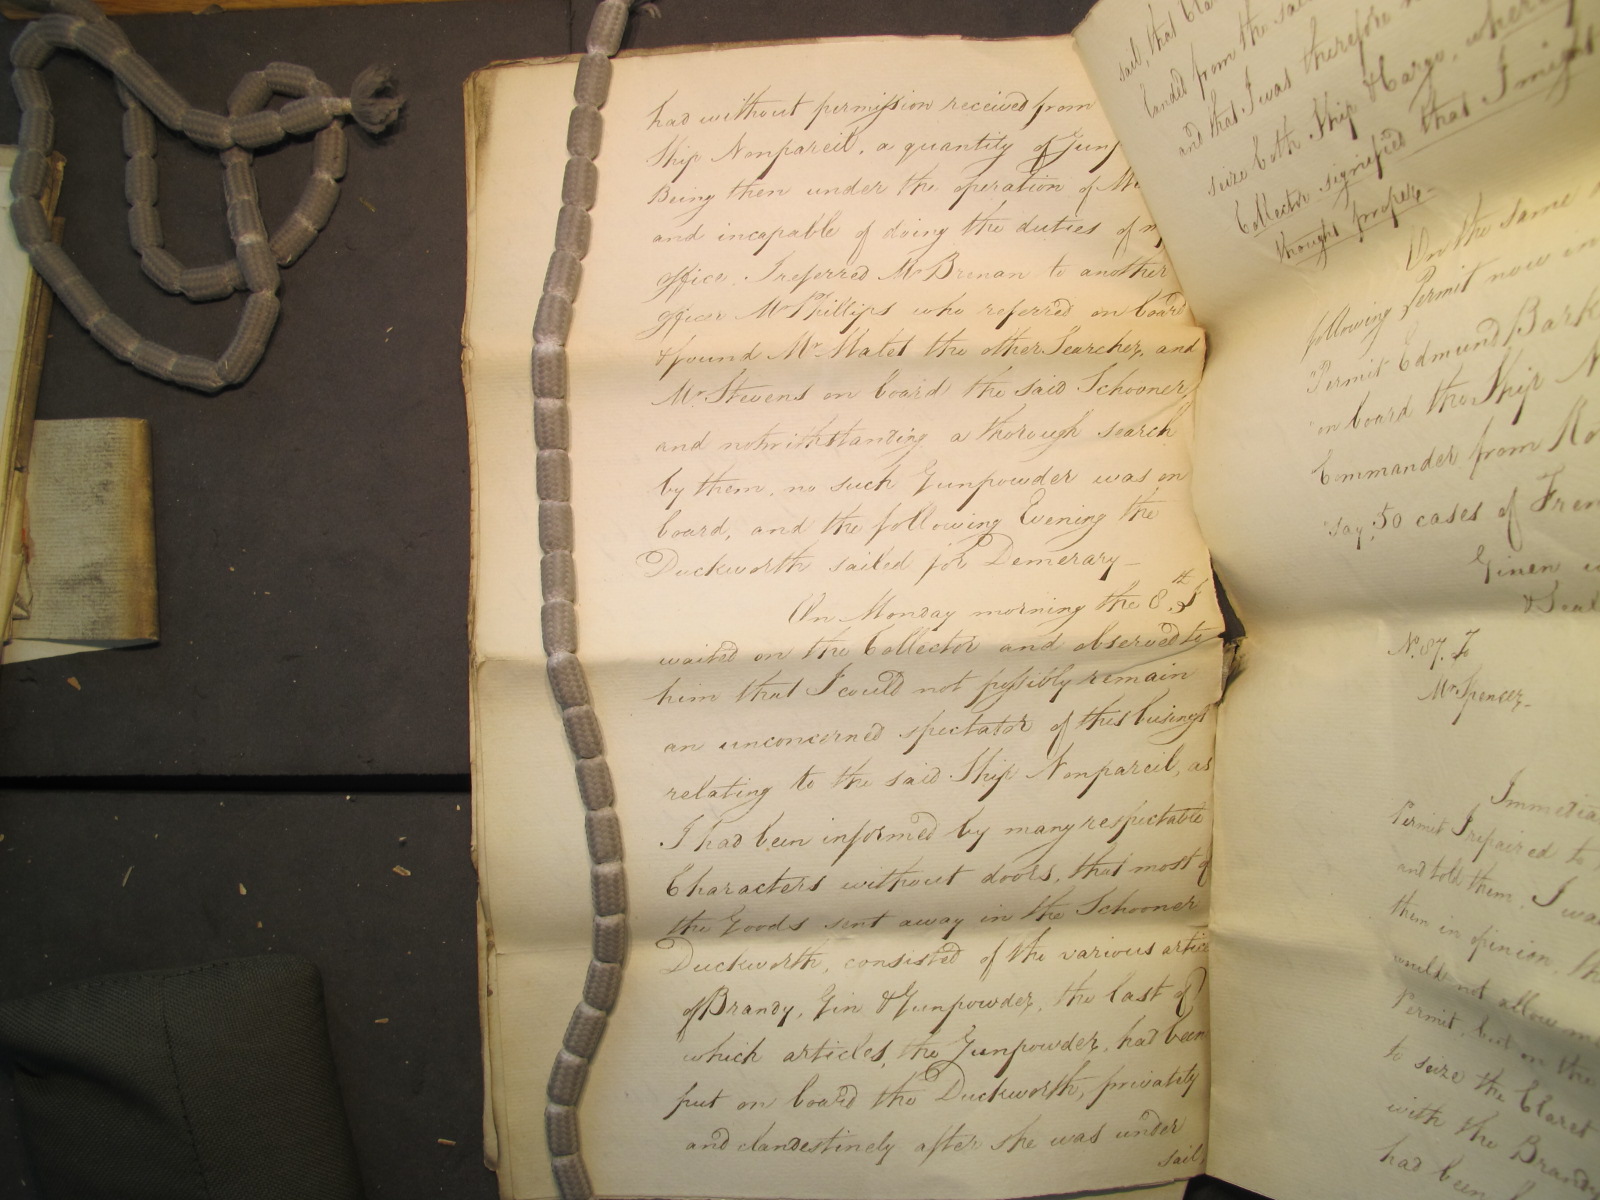 had without permission received from
Ship Nonpareil, a quantity of Gunp
Being then under the operation of Me
and incapable of doing the duties of m
office, I referred Mr Brenan to another
officer Mr Phillips who referred on board
& found Mr Matet the other Searcher, and
Mr Stevens on board the said Schooner,
and notwithstanding a thorough search
by them, no such Gunpowder was on
board, and the following Evening the
Duckworth sailed for Demerary—
On Monday morning the 8th I
waited on the Collector and observed to
him that I could not possibly remain
an unconcerned spectator of this business
relating to the said Ship Nonpareil, as
I had been informed by many respectable
Characters without doors, that most of
the Goods sent away in the Schooner
Duckworth, consisted of the various artic
of Brandy, Gin & Gunpowder, the last of
which articles, the Gunpowder, had been
put on board the Duckworth, privately
and clandestinely after she was under
sail,
sail, that
landed from the sai
and that I was therefore
seize both Ship & Cargo, when
Collector signified that I might
thought proper—
On the same
following Permit now in
"Permit Edmund Bark
"on board the Ship N
Commander from
"say, 50 cases of Fren
Given
& Seal
No. 87. To
Mr Spencer—
Immedia
Permit I repaired to
and told them, I was
them in opinion, th
would not allow m
Permit, but on the
to seize the Claret
with the Brandy
had been